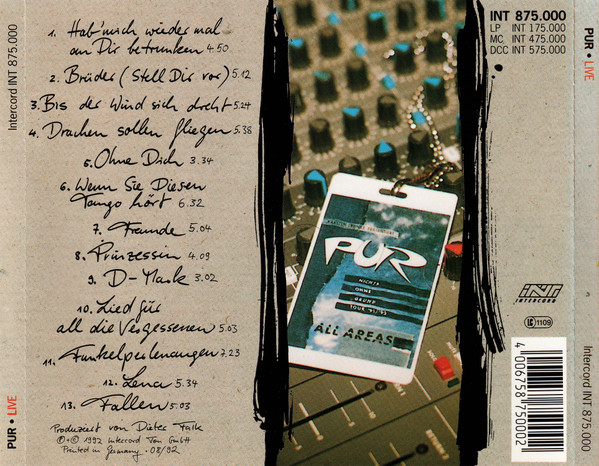 Intercord INT 875.000
PUR • LIVE
1. Hab' mich wieder mal
an Dir betrunken 4.50
2. Brüder (Stell Dir vor) 5.12
3. Bis der Wind sich dreht 5.24
4. Drachen sollen fliegen 5.38
5. Ohne Dich 3.34
6. Wenn Sie Diesen
Tango hört 6.32
7. Freunde 5.04
8. Prinzessin 4.09
9. D-Mark 3.02
10. Lied für
all die Vergessenen 5.03
11. Funkelperlenaugen 7.23
12. Lena 5.34
13. Fallen 5.03
Produziert von Dieter Falk
℗ + © 1992 Intercord Ton GmbH
Printed in Germany · 08/92
PUR
NICHTS
OHNE
GRUND
TOUR 91/92
ALL AREAS
INT 875.000
LP INT 175.000
MC INT 475.000
DCC INT 575.000
INT
INTERCORD
LC 1109
4 006758 750002
PUR • LIVE
Intercord INT 875.000